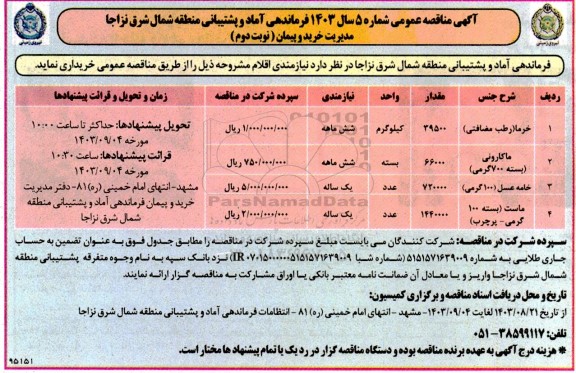 آگهی مناقصه عمومی شماره ۵ سال ۱۴۰۳ فرماندهی آماد و پشتیبانی منطقه شمال شرق نزاجا
مدیریت خرید و پیمان (نوبت دوم)
نیروی زمینی
نیروی زمینی
فرماندهی آماد و پشتیبانی منطقه شمال شرق نزاجا در نظر دارد نیازمندی اقلام مشروحه ذیل را از طریق مناقصه عمومی خریداری نماید.
ردیف شرح جنس مقدار واحد نیازمندی سپرده شرکت در مناقصه زمان و تحویل و قرائت پیشنهادها
۱ خرما(رطب مضافتی) ۳۹۵۰۰ کیلوگرم شش ماهه ۱/۰۰۰/۰۰۰/۰۰۰ ریال
۲ ماکارونی (بسته ۷۰۰گرمی) ۶۶۰۰۰ بسته شش ماهه ۷۵۰/۰۰۰/۰۰۰ ریال
۳ خامه عسل (۱۰۰گرمی) ۷۲۰۰۰۰ عدد یک ساله ۵/۰۰۰/۰۰۰/۰۰۰ ریال
۴ ماست (بسته ۱۰۰ گرمی- پرچرب) ۱۴۴۰۰۰۰ عدد یک ساله ۲/۰۰۰/۰۰۰/۰۰۰ ریال
تحویل پیشنهادها: حداکثر تا ساعت ۱۰:۰۰
مورخه ۱۴۰۳/۰۹/۰۴
قرائت پیشنهادها: ساعت ۱۰:۳۰
مورخه ۱۴۰۳/۰۹/۰۴
مشهد-انتهای امام خمینی (ره)۸۱- دفتر مدیریت
خرید و پیمان فرماندهی آماد و پشتیبانی منطقه
شمال شرق نزاجا
ParsNamadData
سپرده شرکت در مناقصه: شرکت کنندگان می بایست مبلغ سپرده شرکت در مناقصه را مطابق جدول فوق به عنوان تضمین به حساب
جاری طلایی به شماره ۵۱۵۱۵۷۱۶۳۹۰۰۹ (شماره شبا IR ۰۷۰۱۵۰۰۰۰۰۰۵۱۵۱۵۷۱۶۳۹۰۰۹) نزد بانک سپه به نام وجوه متفرقه پشتیبانی منطقه
شمال شرق نزاجا واریز و یا معادل آن ضمانت نامه معتبر بانکی یا اوراق مشارکت به مناقصه گزار ارائه نمایند.
تاریخ و محل دریافت اسناد مناقصه و برگزاری کمیسیون:
از تاریخ ۱۴۰۳/۰۸/۲۱ لغایت ۱۴۰۳/۰۹/۰۴- مشهد - انتهای امام خمینی (ره) ۸۱ - انتظامات فرماندهی آماد و پشتیبانی منطقه شمال شرق نزاجا
تلفن: ۳۸۵۹۹۱۱۷-۰۵۱
* هزینه درج آگهی به عهده برنده مناقصه بوده و دستگاه مناقصه گزار در رد یک یا تمام پیشنهاد ها مختار است.
۹۵۱۵۱